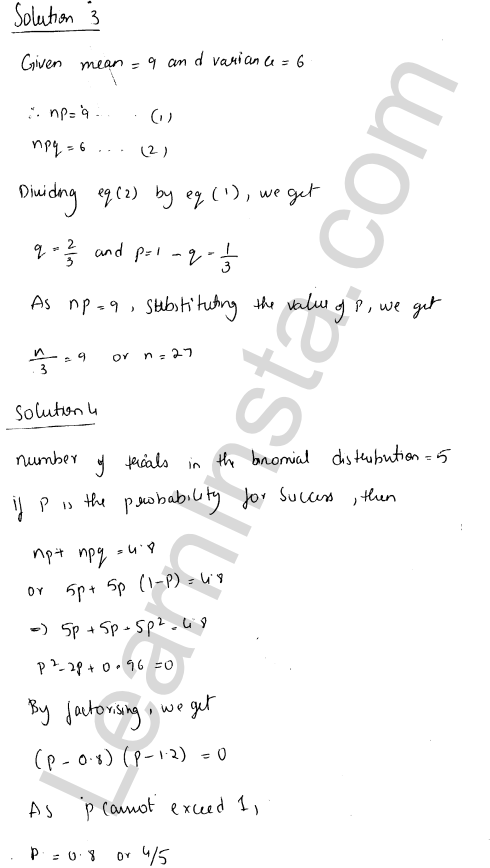 Solution 3
Given mean = 9 and variance = 6
∴ np = 9 .... (1)
npq = 6 ... (2)
Dividing eq (2) by eq (1), we get
q = 2/3 and p = 1 - q = 1/3
As np = 9, substituting the value of P, we get
n/3 = 9 or n = 27
Solution 4
number of trials in the binomial distribution = 5
if P is the probability for Success, then
np + npq = 4.8
or 5p + 5p (1-P) = 4.8
=> 5p + 5p - 5p² = 4.8
p² - 2p + 0.96 = 0
By factorising, we get
(p - 0.8) (p - 1.2) = 0
As p cannot exceed 1,
P = 0.8 or 4/5
LearnInsta.com